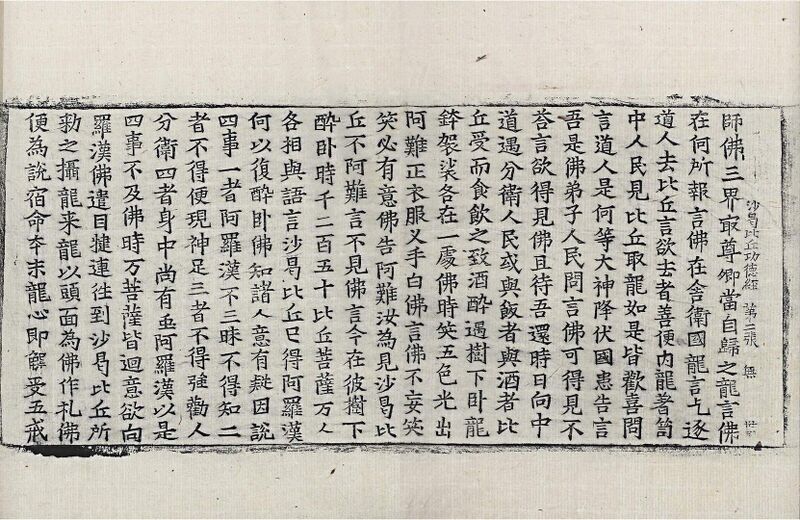 師佛三界㝡尊卿當自歸之龍言佛
沙曷比丘功德經 第二張 無
在何所報言佛在舍衛國龍言乞逐
道人去比丘言欲去者善便内龍著笥
中人民見比丘取龍如是皆歡喜問
言道人是何等大神降伏國患告言
吾是佛弟子人民問言佛可得見不
荅言欲得見佛且待吾還時日向中
道遇分衛人民或與飯者與酒者比
丘受而食飲之致酒醉過樹下卧龍
鉢袈裟各在一處佛時笑五色光出
阿難正衣服叉手白佛言佛不妄笑
笑必有意佛告阿難汝為見沙曷比
丘不阿難言不見佛言今在彼樹下
醉卧時千二百五十比丘菩薩万人
各相與語言沙曷比丘已得阿羅漢
何以復醉卧佛知諸人意有疑因說
四事一者阿羅漢不三昧不得知二
者不得便現神足三者不得強勸人
分衛四者身中尚有䖝阿羅漢以是
四事不及佛時万菩薩皆迴意欲向
羅漢佛遣目揵連往到沙曷比丘所
勑之攝龍来龍以頭面為佛作礼佛
便為說宿命本末龍心即解受五戒